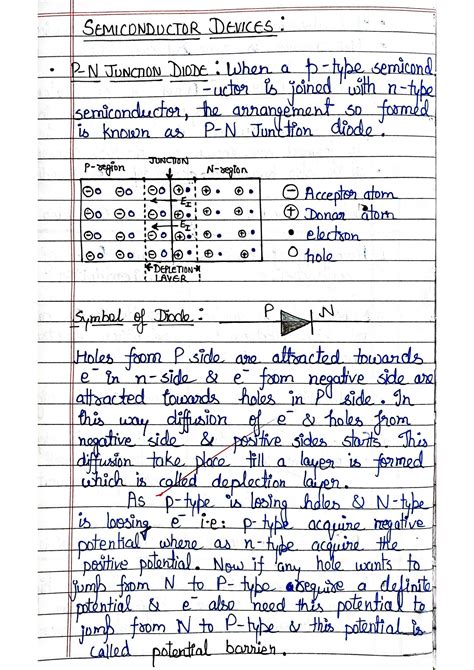 SEMICONDUCTOR DEVICES:
• P-N JUNCTION DIODE: When a p-type semicond
-uctor is joined with n-type
semiconductor, the arrangement so formed
is known as P-N Junction diode.
P-region JUNCTION N-region
EI
EI
DEPLETION
LAYER
⊖ Acceptor atom
⊕ Donar atom
• electron
o hole
Symbol of Diode: P N
Holes from P side are attracted towards
e⁻ in n-side & e⁻ from negative side are
attracted towards holes in P side. In
this way diffusion of e⁻ & holes from
negative side & positive sides starts. This
diffusion take place till a layer is formed
which is called deplection layer.
As p-type is losing holes & N-type
is loosing e⁻ i.e: p-type acquire negative
potential where as n-type acquire the
positive potential. Now if any hole wants to
jump from N to P-type require a definite
potential & e⁻ also need this potential to
jomp from N to P-type & this potential is
called potential barrier.